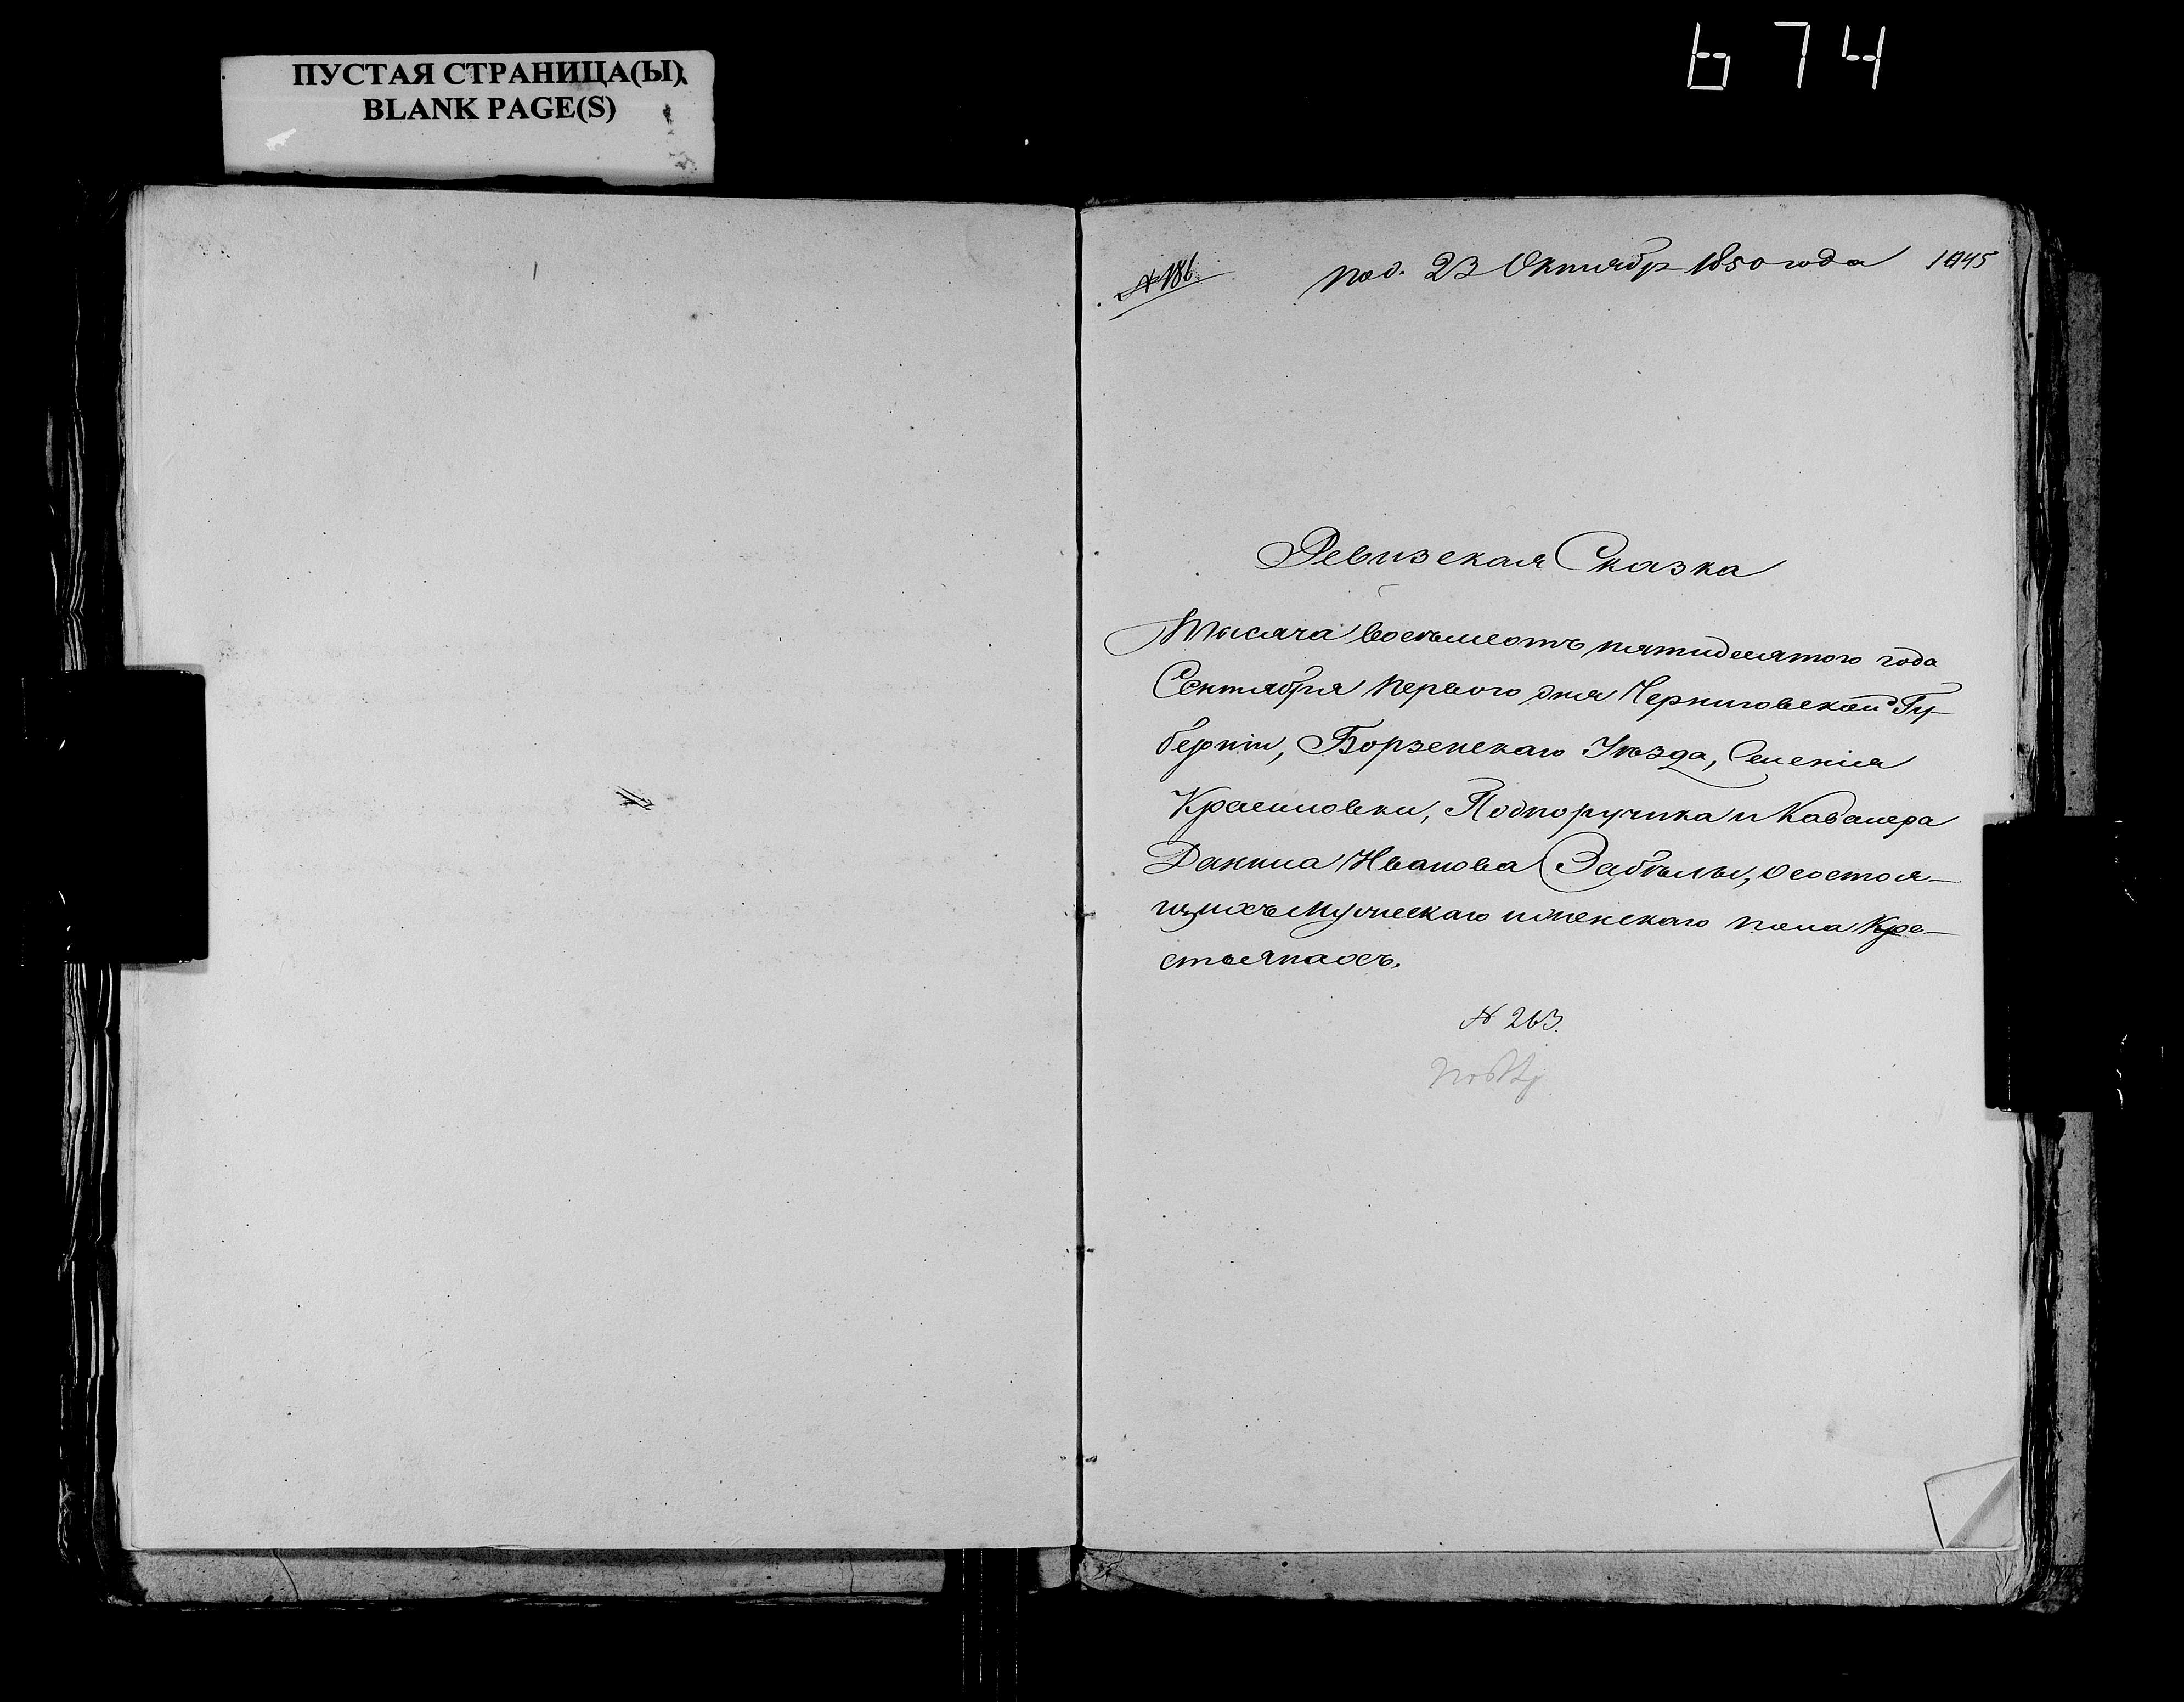 674
ПУСТАЯ СТРАНИЦА(Ы)
BLANK PAGE(S)
№ 186.
под. 23 Октябр 1850 года
Ревизская Сказка
Тысяча восемьсотъ пятидесятого года
Сентября первого дня Черниговской Гу-
берніи, Борзенскаго Уѣзда, Селенія
Красиловки, Подпоручика и Кавалера
Данила Иванова Забѣлы, о состоя-
щихъ мужескаго и женскаго пола Кре-
стьянахъ.
№ 263.